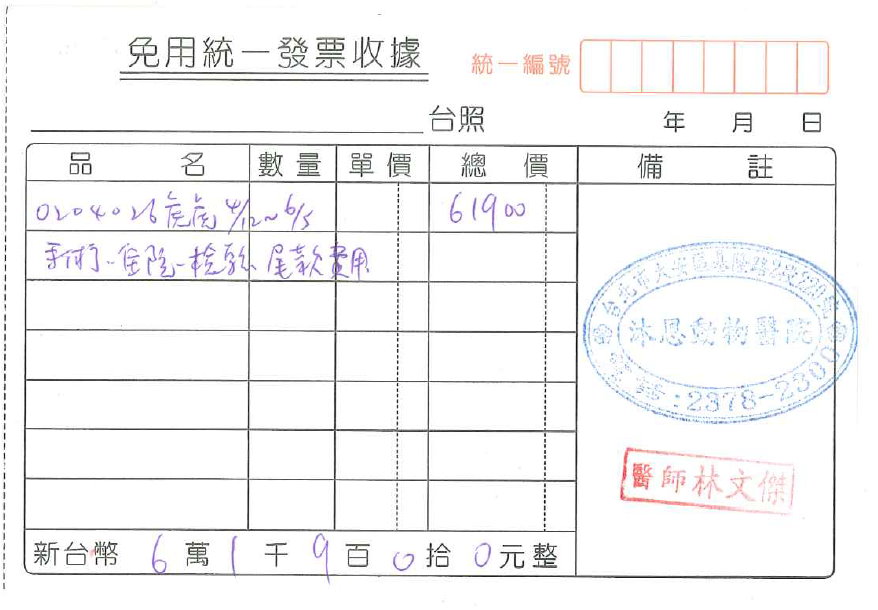 免用統一發票收據
統一編號
台照 年 月 日
品名 數量 單價 總價 備註
0204026虎虎 4/12~6/5 61900
手術-住院-檢驗 尾款費用
台北市大安區基隆路2段
沐恩動物醫院
電話:2378-2300
醫師林文傑
新台幣 6 萬 1 千 9 百 0 拾 0 元整